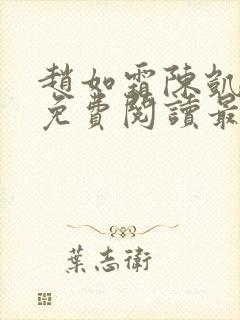 趙如霜陳凱
免費閱讀最
葉志衛